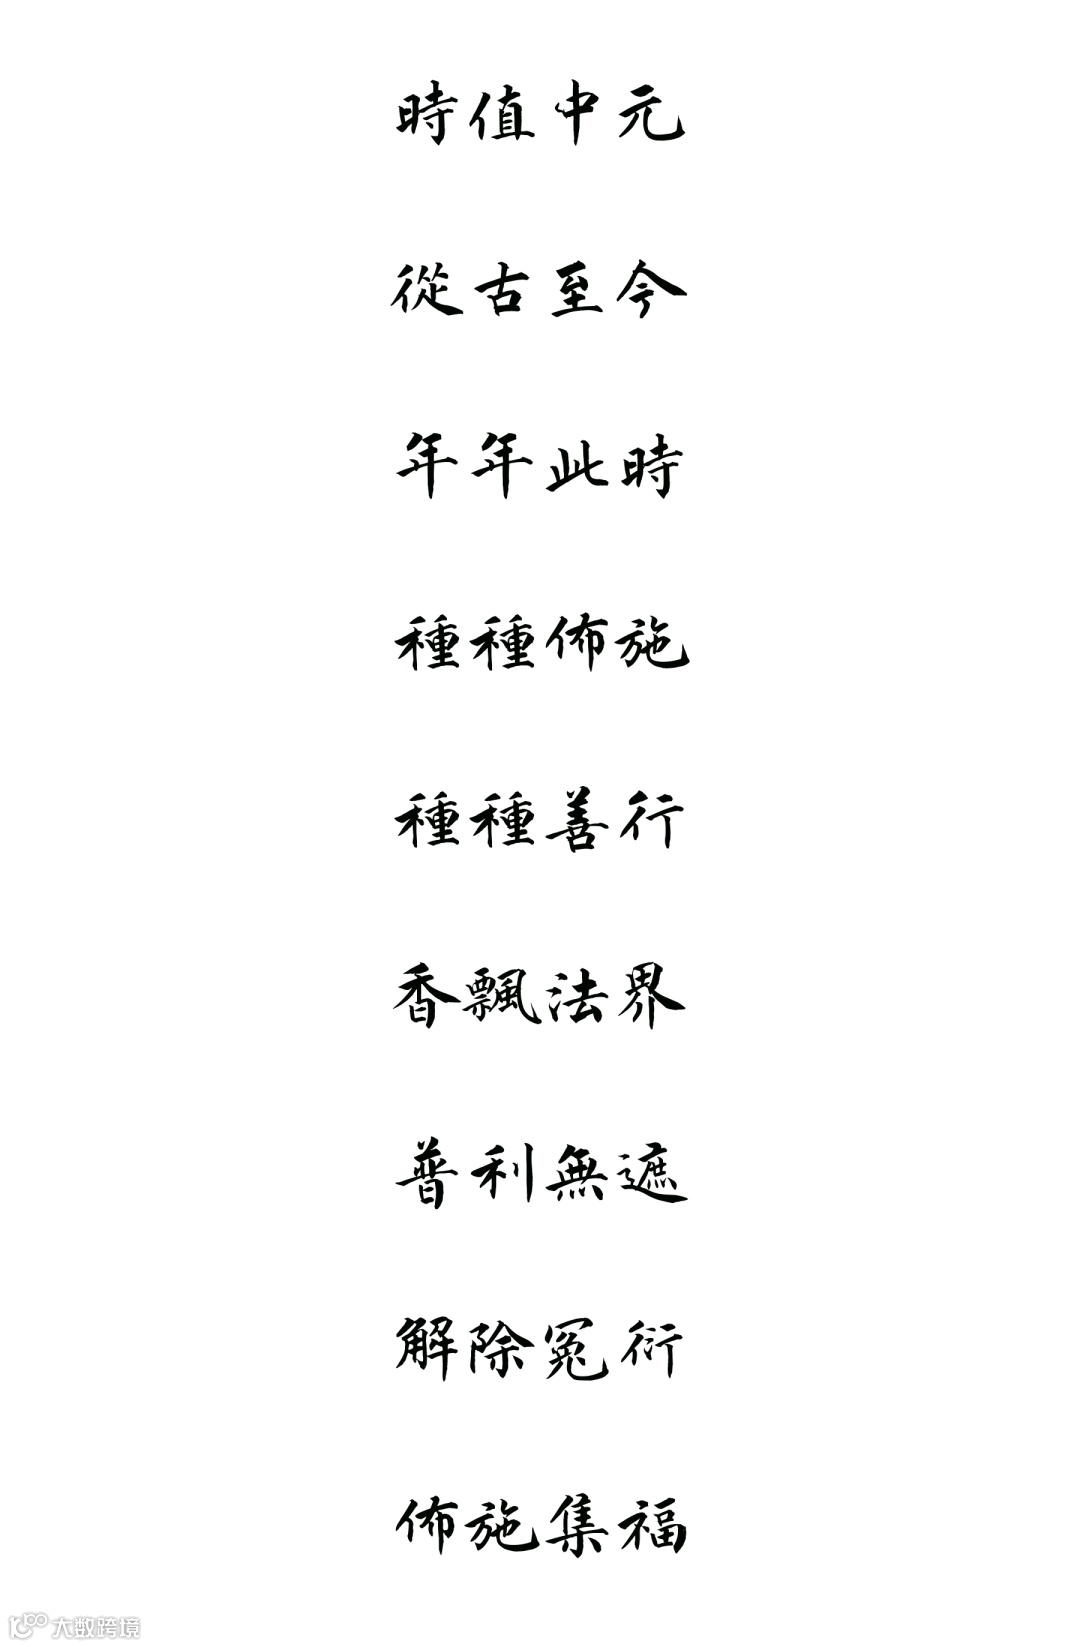 時值中元
從古至今
年年此時
種種佈施
種種善行
香飄法界
普利無遮
解除冤衍
佈施集福
大数跨境